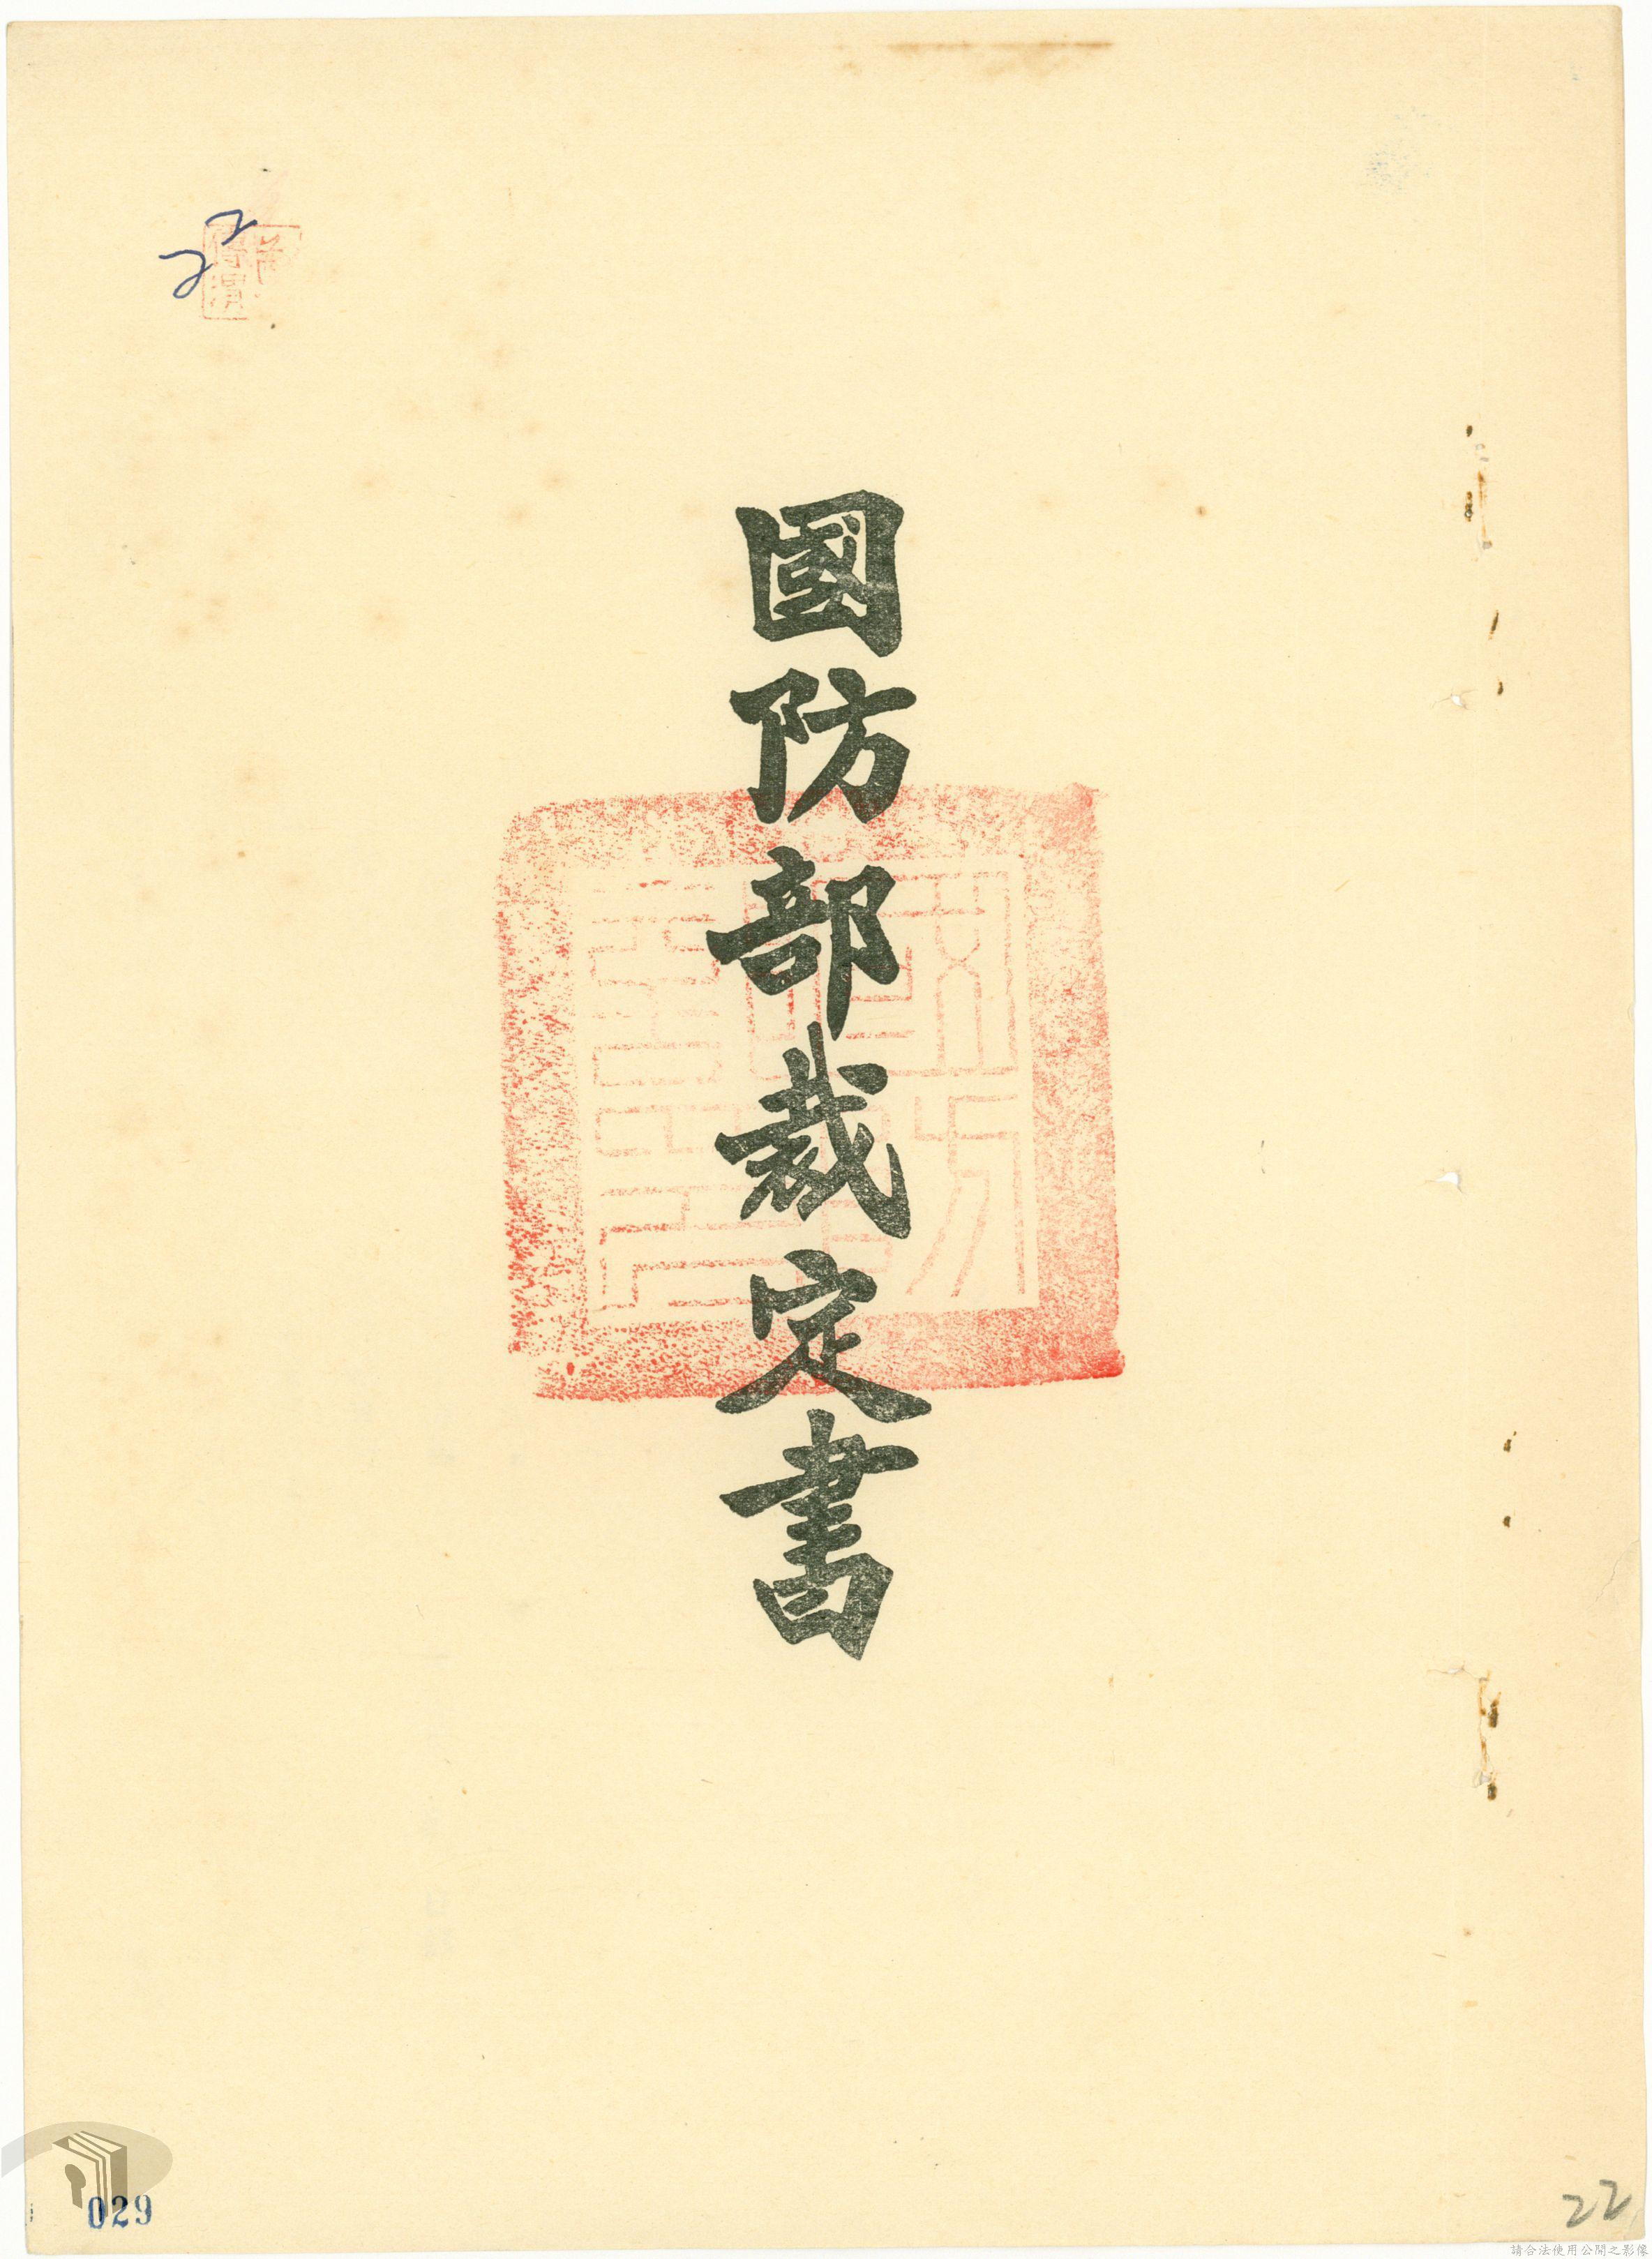 國防部裁定書
029
22
請合法使用公開之影像